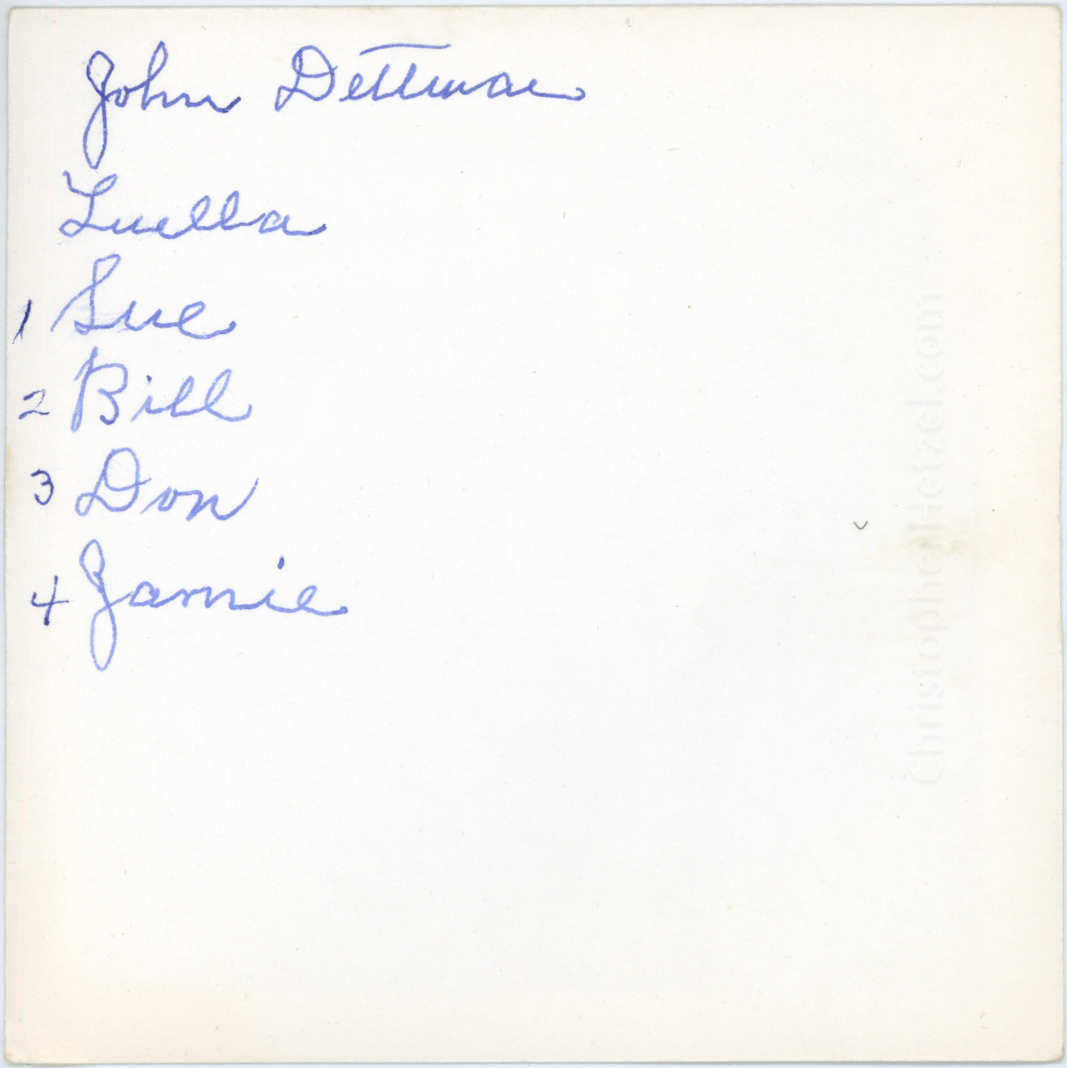 John Dettman
Luella
1 Sue
2 Bill
3 Don
4 Jamie
ChristopherHeizel.com